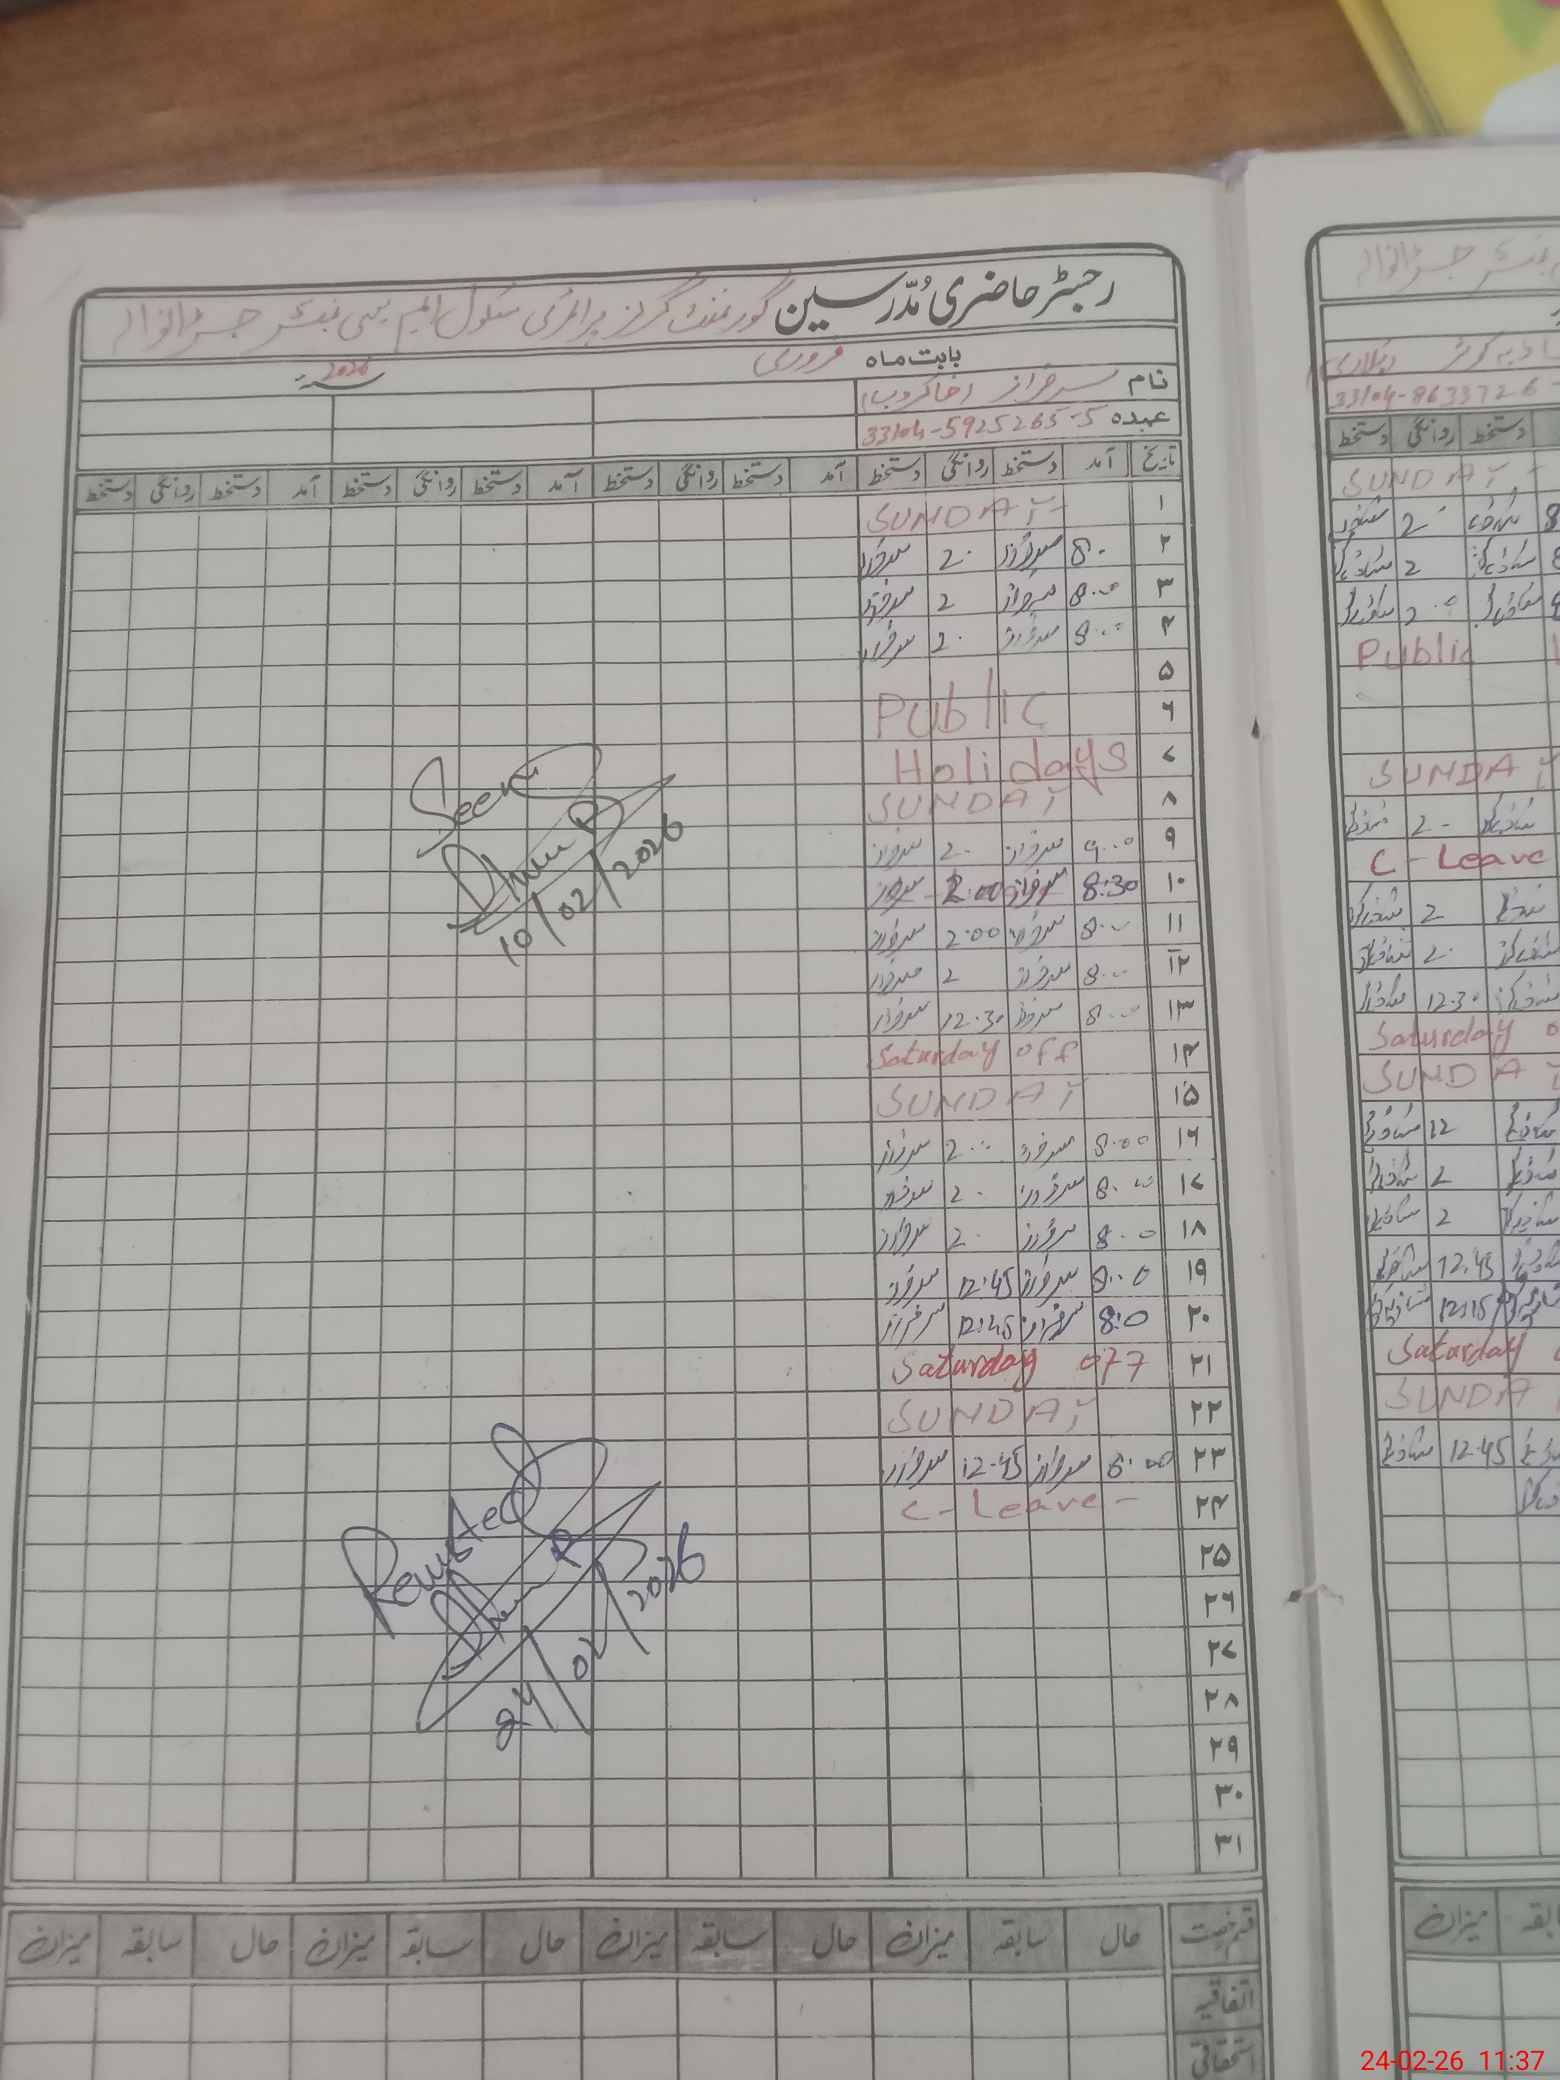 رجسٹر حاضری مُدّرسین گورنمنٹ گرلز پرائمری سکول جڑانوالہ
بابت ماہ فروری 2026
نام سرفراز (خاکروب)
عہدہ 33104-5925265-5
تاریخ آمد دستخط روانگی دستخط آمد دستخط روانگی دستخط آمد دستخط روانگی دستخط
۱ SUNDAY
۲ 8.0 سرفراز 2.0 سرفراز
۳ 8.00 سرفراز 2 سرفراز
۴ 8.00 سرفراز 2.0 سرفراز
۵
۶ Public
۷ Holidays
۸ SUNDAY
۹ 9.00 سرفراز 2.0 سرفراز
۱۰ 8:30 سرفراز 2:00 سرفراز
۱۱ 8.00 سرفراز 2:00 سرفراز
۱۲ 8.00 سرفراز 2 سرفراز
۱۳ 8.00 سرفراز 12.30 سرفراز
۱۴ Saturday off
۱۵ SUNDAY
۱۶ 8:00 سرفراز 2.00 سرفراز
۱۷ 8.00 سرفراز 2.0 سرفراز
۱۸ 8.00 سرفراز 2.0 سرفراز
۱۹ 8:00 سرفراز 12:45 سرفراز
۲۰ 8:0 سرفراز 12:45 سرفراز
۲۱ Saturday off
۲۲ SUNDAY
۲۳ 8:00 سرفراز 12-45 سرفراز
۲۴ C-Leave-
۲۵
۲۶
۲۷
۲۸
۲۹
۳۰
۳۱
Seen
10/02/2026
24/02/2026
قسم رخصت حال سابقہ میزان حال سابقہ میزان حال سابقہ میزان حال سابقہ میزان
اتفاقیہ
استحقاقی
جڑانوالہ
33104-8633726
دستخط روانگی دستخط
SUNDAY
2
2
2.0
Public
SUNDAY
2-
C-Leave
2
2.
12.30
Saturday
SUNDAY
12
2
2
12:45
12:15
Saturday
SUNDAY
12.45
سابقہ میزان
24-02-26 11:37